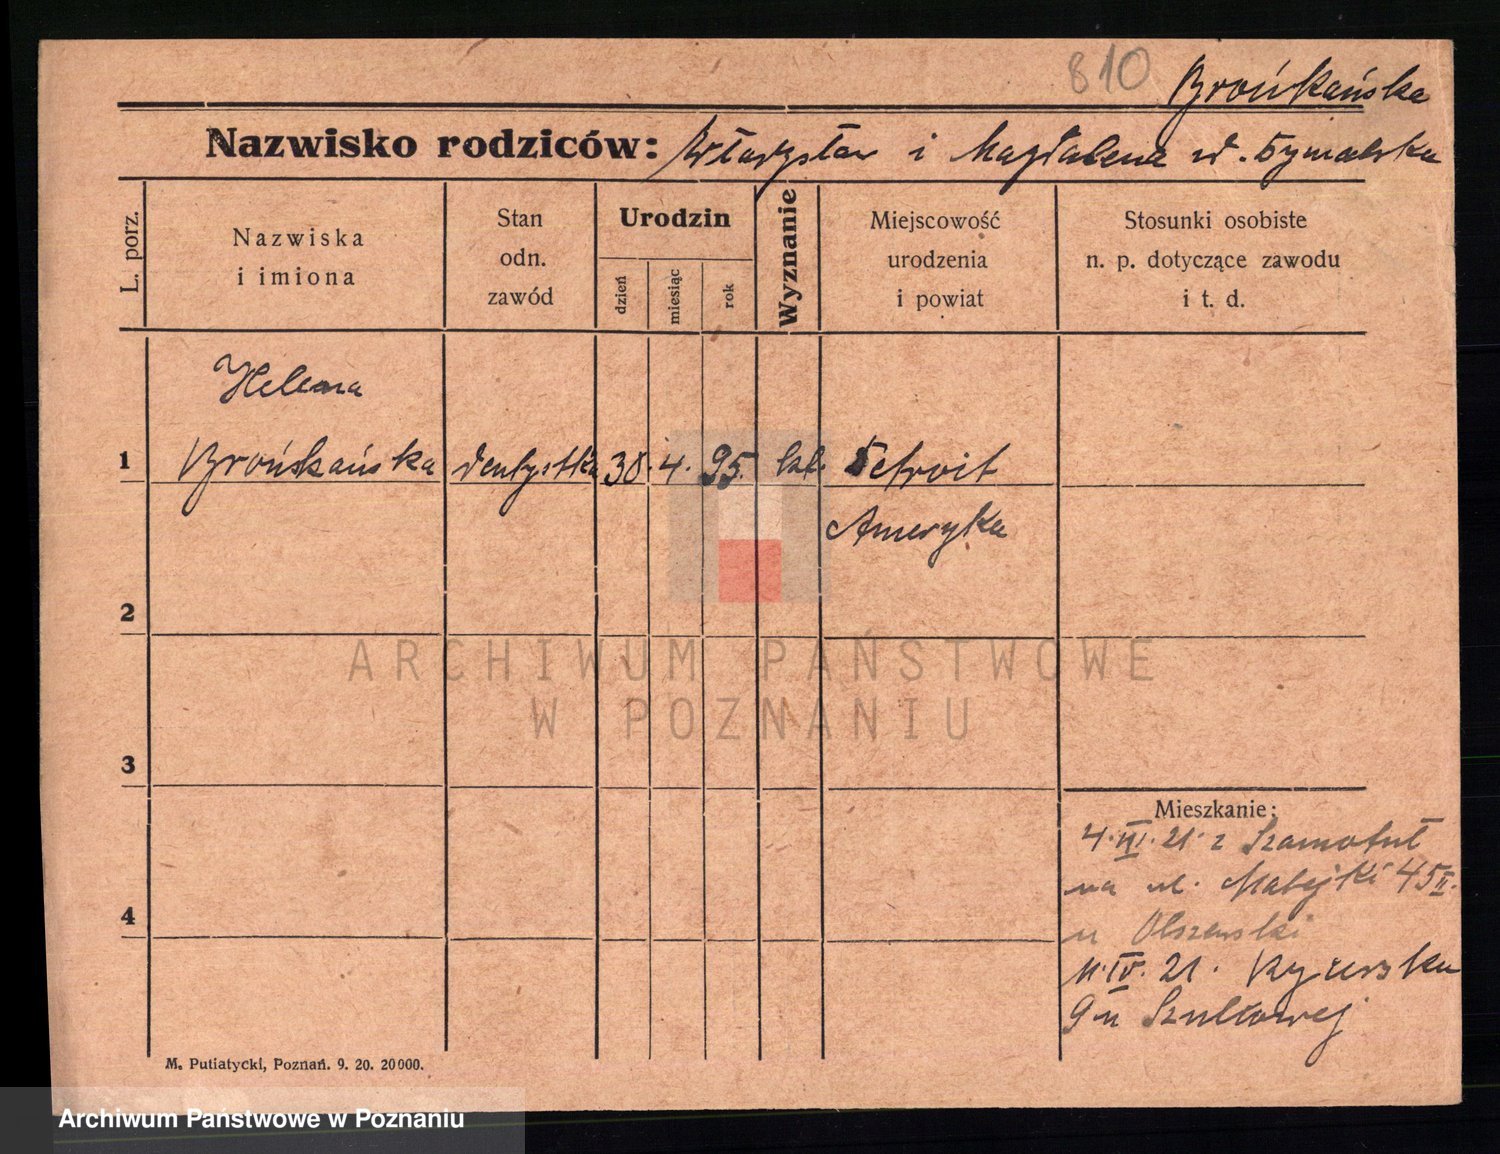 810 Brońkańska
Nazwisko rodziców: Władysław i Magdalena
L. porz.
Nazwiska
i imiona
Stan
odn.
zawód
Urodzin
dzień
miesiąc
rok
Wyznanie
Miejscowość
urodzenia
i powiat
Stosunki osobiste
n. p. dotyczące zawodu
i t. d.
Helena
1 Brońkańska dentystka 30. 4. 95. kat. Detroit
Ameryka
2
3
4
Mieszkanie:
4. 21 z Szamotuł
na ul. Matejki 45 II.
u Olszewski
11. IV. 21. Rycerska
9 u Szulcowej
M. Putiatycki, Poznań. 9. 20. 20000.
ARCHIWUM PAŃSTWOWE
W POZNANIU
Archiwum Państwowe w Poznaniu